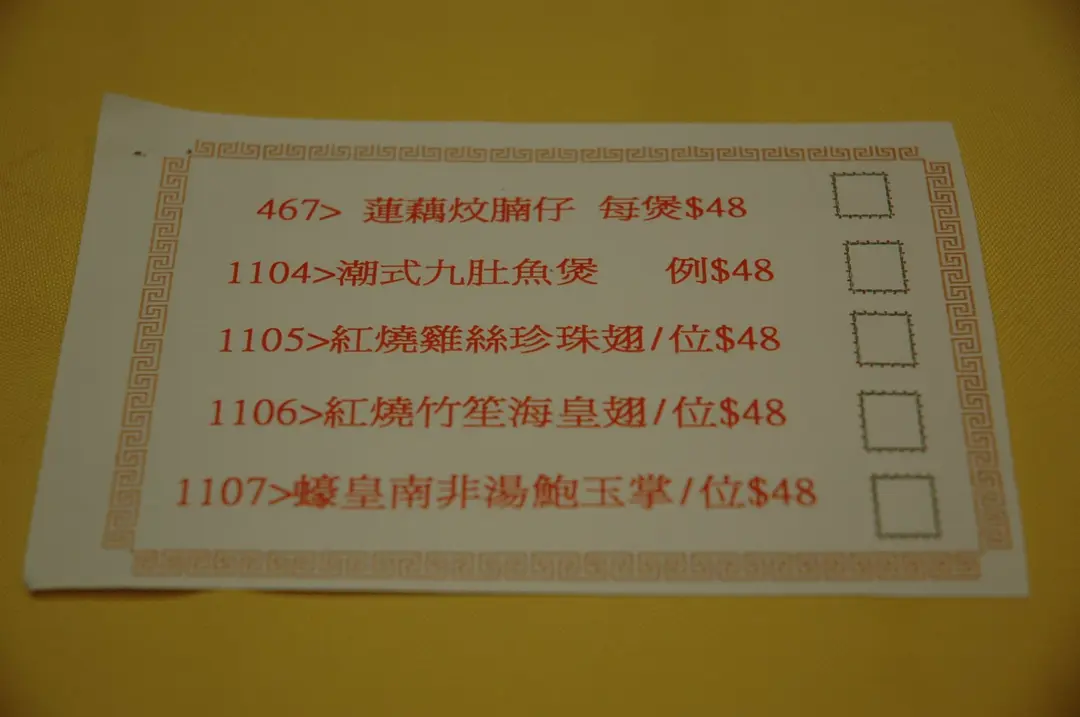 467> 蓮藕炆腩仔 每煲$48
1104>潮式九肚魚煲 例$48
1105>紅燒雞絲珍珠翅/位$48
1106>紅燒竹笙海皇翅/位$48
1107>蠔皇南非湯鮑玉掌/位$48